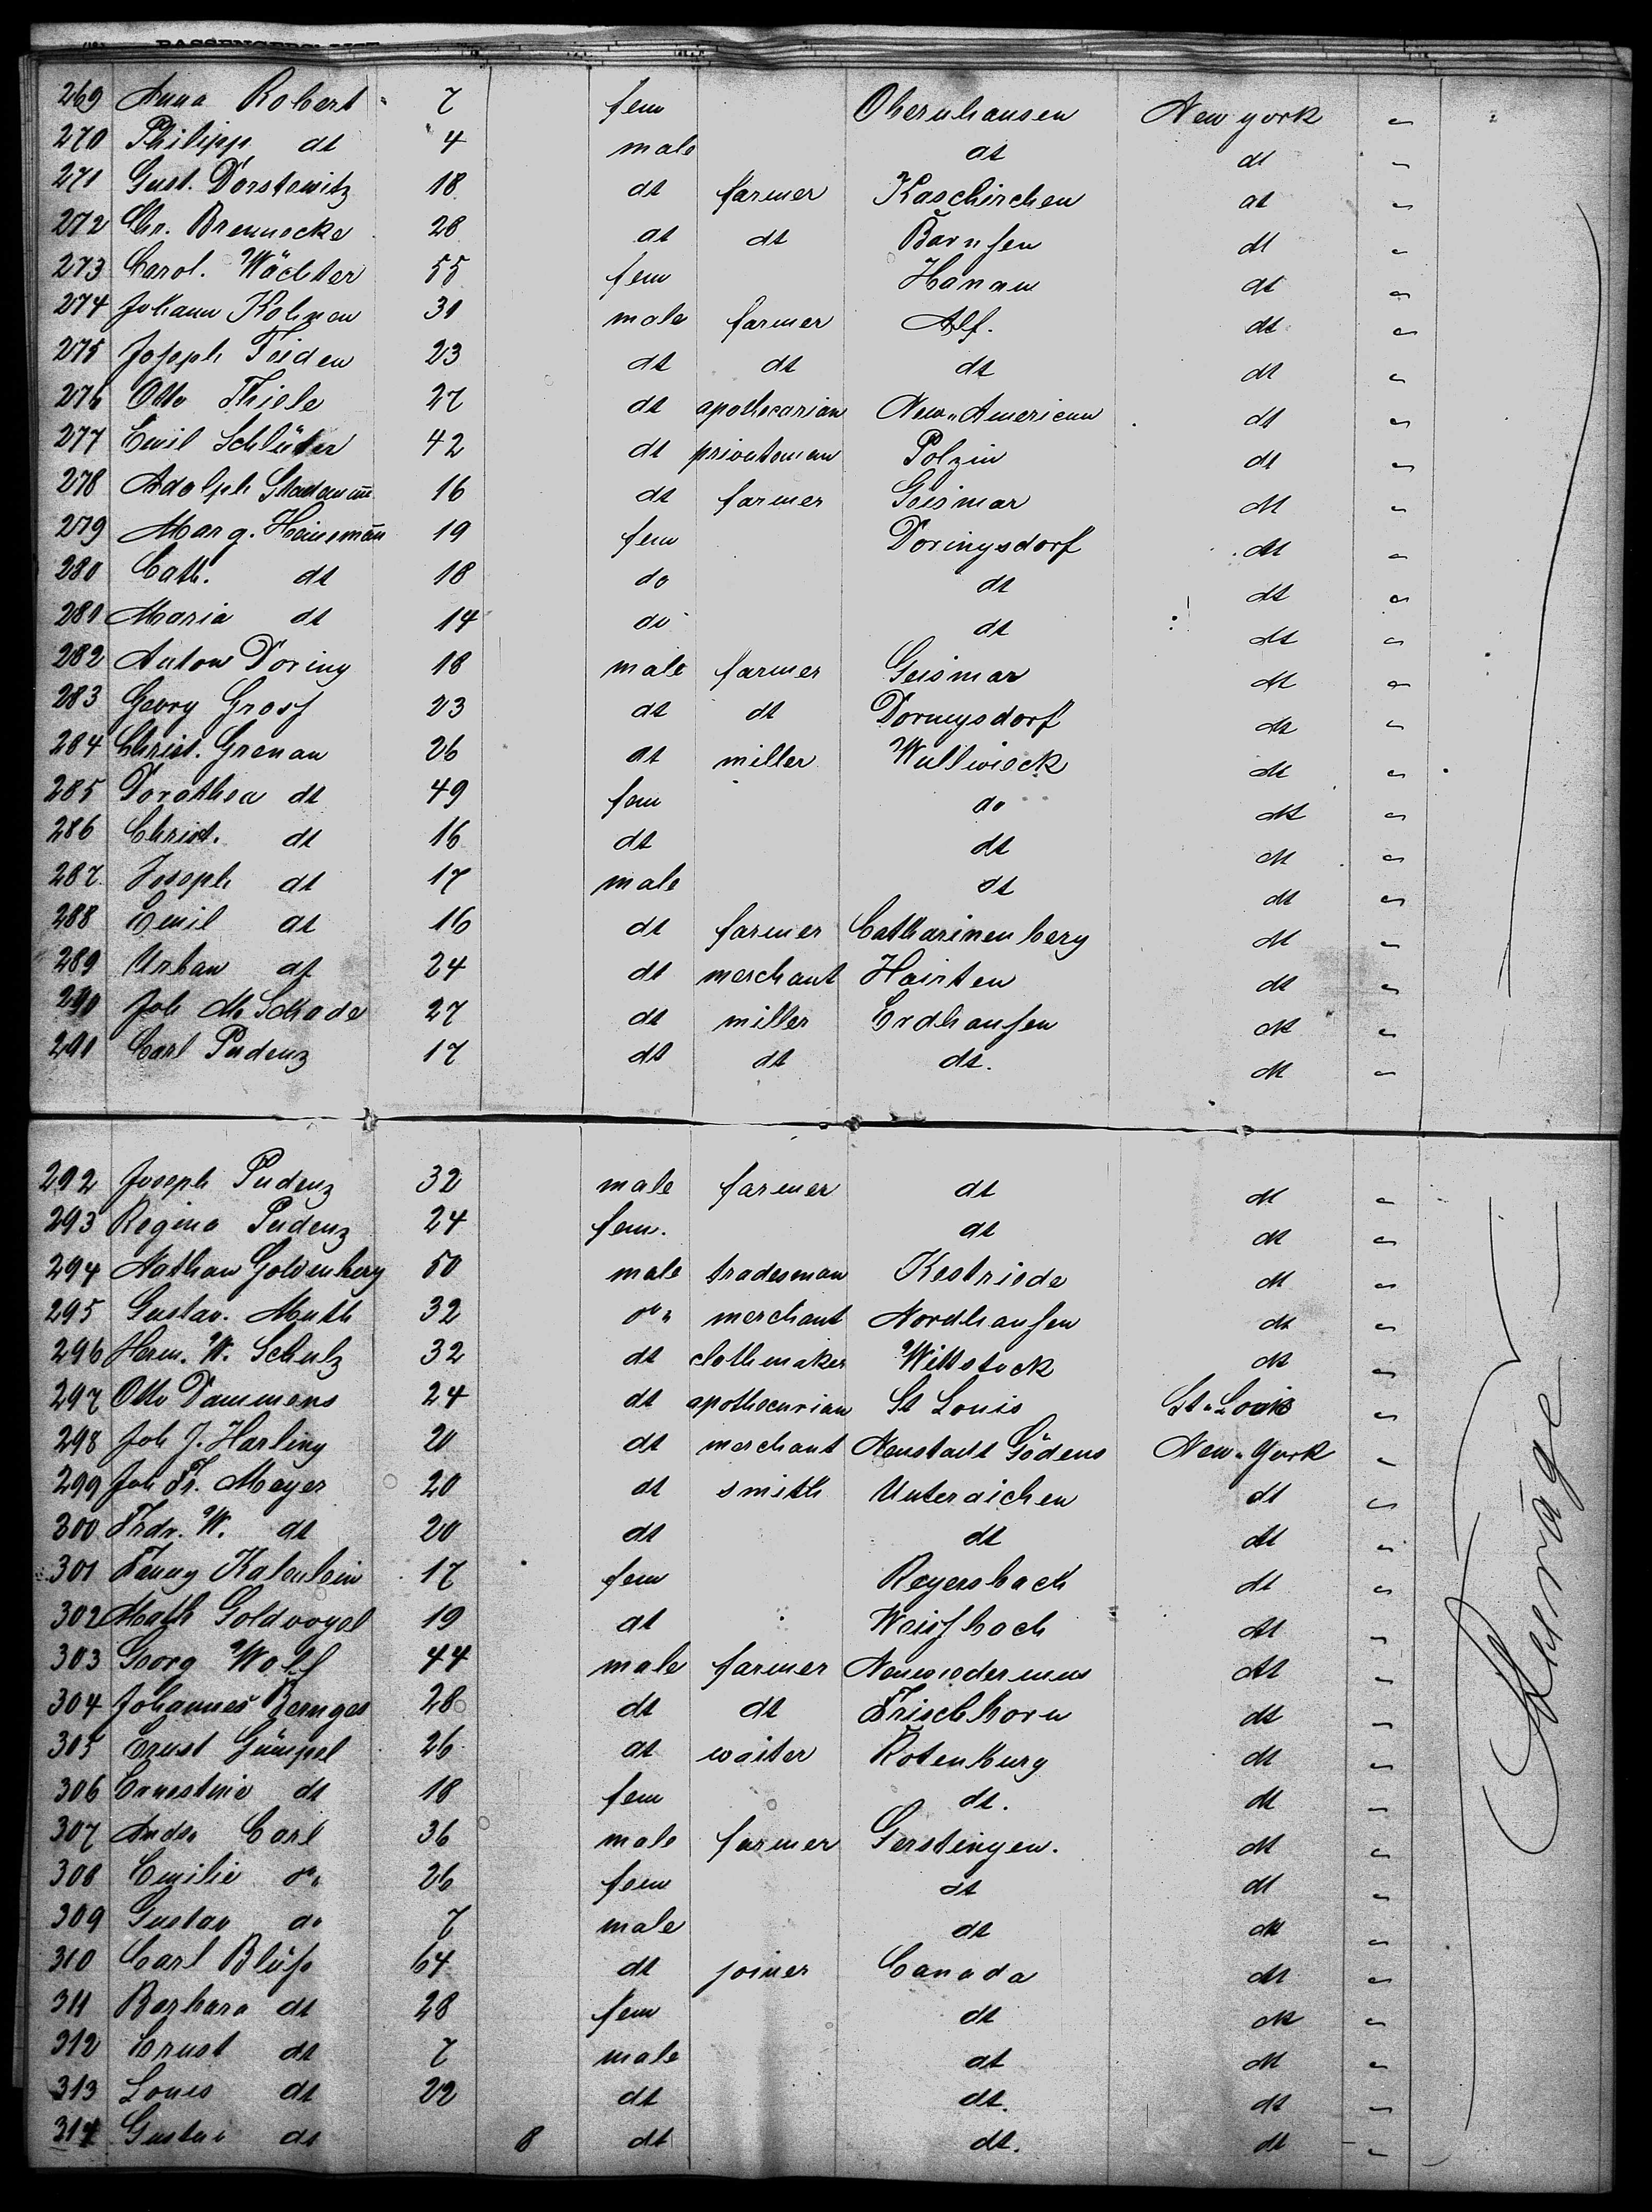 PASSENGERS LIST
269 Anna Robert 7 fem Obernhausen New york "
270 Philipp dt 4 male dt dt "
271 Gust. Dorstewitz 18 dt farmer Kaschirchen dt "
272 Chr. Brennecke 28 dt dt Barnsen dt "
273 Carol. Wächter 55 fem Hanau dt "
274 Johann Kolmen 31 male farmer Alf. dt "
275 Joseph Foiden 23 dt dt dt dt "
276 Otto Thiele 27 dt apothecarian New-American dt "
277 Emil Schlüter 42 dt privateman Polzin dt "
278 Adolph Stademañ 16 dt farmer Geismar dt "
279 Marg. Heinemañ 19 fem Doringsdorf dt "
280 Cath. dt 18 do dt dt "
281 Maria dt 14 do dt dt "
282 Anton Doring 18 male farmer Geismar dt "
283 Georg Grosf 23 dt dt Doringsdorf dt "
284 Christ. Grenan 26 dt miller Wullwieck dt "
285 Dorothea dt 49 fem do dt "
286 Christ. dt 16 dt dt dt "
287 Joseph dt 17 male dt dt "
288 Emil dt 16 dt farmer Catharinenberg dt "
289 Urban dt 24 dt merchant Hairten dt "
290 Joh M. Schade 27 dt miller Erdhausen dt "
291 Carl Pudenz 17 dt dt dt. dt "
292 Joseph Pudenz 32 male farmer dt dt "
293 Regina Pudenz 24 fem. dt dt "
294 Nathan Goldenberg 50 male tradesman Kestriede dt "
295 Gustav. Muth 32 do merchant Nordhausen dt "
296 Herm. W. Schulz 32 dt clothmaker Wittstock dt "
297 Otto Dammens 24 dt apothecarian St Louis St. Louis "
298 Joh J. Harling 20 dt merchant Neustadt Gödens New-York "
299 Joh Fr. Meyer 20 dt smith Unteraichen dt "
300 Frdr. W. dt 20 dt dt dt "
301 Fanny Kalenbein 17 fem Reyersbach dt "
302 Math Goldvogel 19 dt Weisbach dt "
303 Georg Wolf 44 male farmer Neuwiedermus dt "
304 Johannes Bernges 28 dt dt Frischborn dt "
305 Ernst Gümpel 26 dt waiter Rotenburg dt "
306 Ernestine dt 18 fem dt. dt "
307 Andr. Carl 36 male farmer Gerstingen. dt "
308 Emilie do 26 fem dt dt "
309 Gustav do 7 male dt dt "
310 Carl Blüss 64 dt joiner Canada dt "
311 Barbara dt 28 fem dt dt "
312 Ernst dt 7 male dt dt "
313 Louis dt 22 dt dt. dt "
314 Gustav dt 8 dt dt. dt "